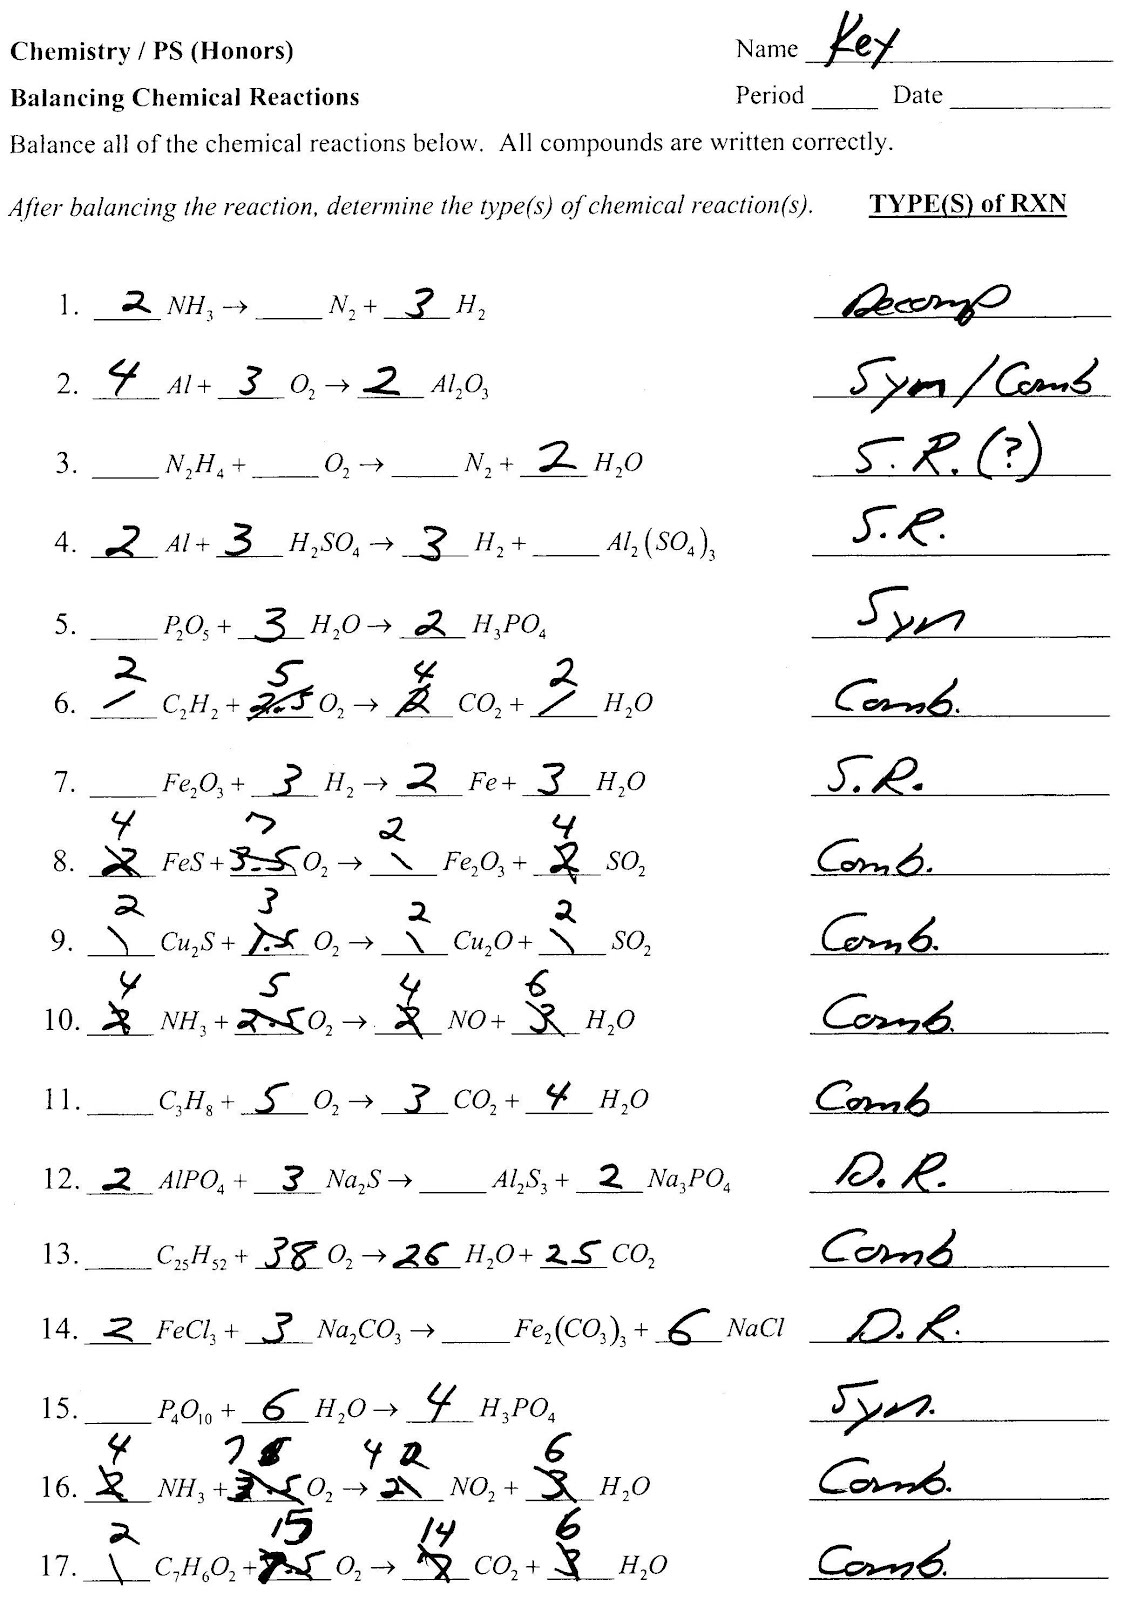 Chemistry / PS (Honors) Name Key
Balancing Chemical Reactions Period ____ Date ________
Balance all of the chemical reactions below. All compounds are written correctly.
After balancing the reaction, determine the type(s) of chemical reaction(s). TYPE(S) of RXN
1. 2 NH₃ → ____ N₂ + 3 H₂ Decomp
2. 4 Al + 3 O₂ → 2 Al₂O₃ Sym / Comb
3. ____ N₂H₄ + ____ O₂ → ____ N₂ + 2 H₂O S.R. (?)
4. 2 Al + 3 H₂SO₄ → 3 H₂ + ____ Al₂(SO₄)₃ S.R.
5. ____ P₂O₅ + 3 H₂O → 2 H₃PO₄ Syn
2 5 4 2
6. 1 C₂H₂ + 2.5 O₂ → 2 CO₂ + 1 H₂O Comb.
7. ____ Fe₂O₃ + 3 H₂ → 2 Fe + 3 H₂O S.R.
4 7 2 4
8. 2 FeS + 3.5 O₂ → 1 Fe₂O₃ + 2 SO₂ Comb.
2 3 2 2
9. 1 Cu₂S + 1.5 O₂ → 1 Cu₂O + 1 SO₂ Comb.
4 5 4 6
10. 2 NH₃ + 2.5 O₂ → 2 NO + 3 H₂O Comb.
11. ____ C₃H₈ + 5 O₂ → 3 CO₂ + 4 H₂O Comb
12. 2 AlPO₄ + 3 Na₂S → ____ Al₂S₃ + 2 Na₃PO₄ D.R.
13. ____ C₂₅H₅₂ + 38 O₂ → 26 H₂O + 25 CO₂ Comb
14. 2 FeCl₃ + 3 Na₂CO₃ → ____ Fe₂(CO₃)₃ + 6 NaCl D.R.
15. ____ P₄O₁₀ + 6 H₂O → 4 H₃PO₄ Syn.
4 7 4 2 6
16. 2 NH₃ + 3.5 O₂ → 2 NO₂ + 3 H₂O Comb.
2 15 14 6
17. 1 C₇H₆O₂ + 7.5 O₂ → 7 CO₂ + 3 H₂O Comb.